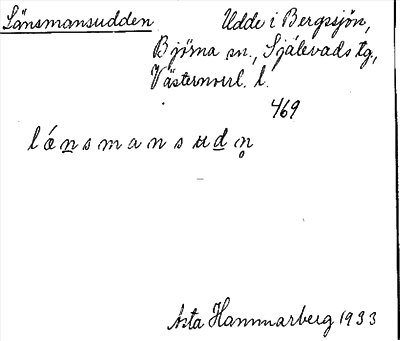 Länsmansudden Udde i Bergsjön,
Björna sn., Själevads tg.,
Västernorrl. l.
469
lánsmansudn̥
Asta Hammarberg 1933